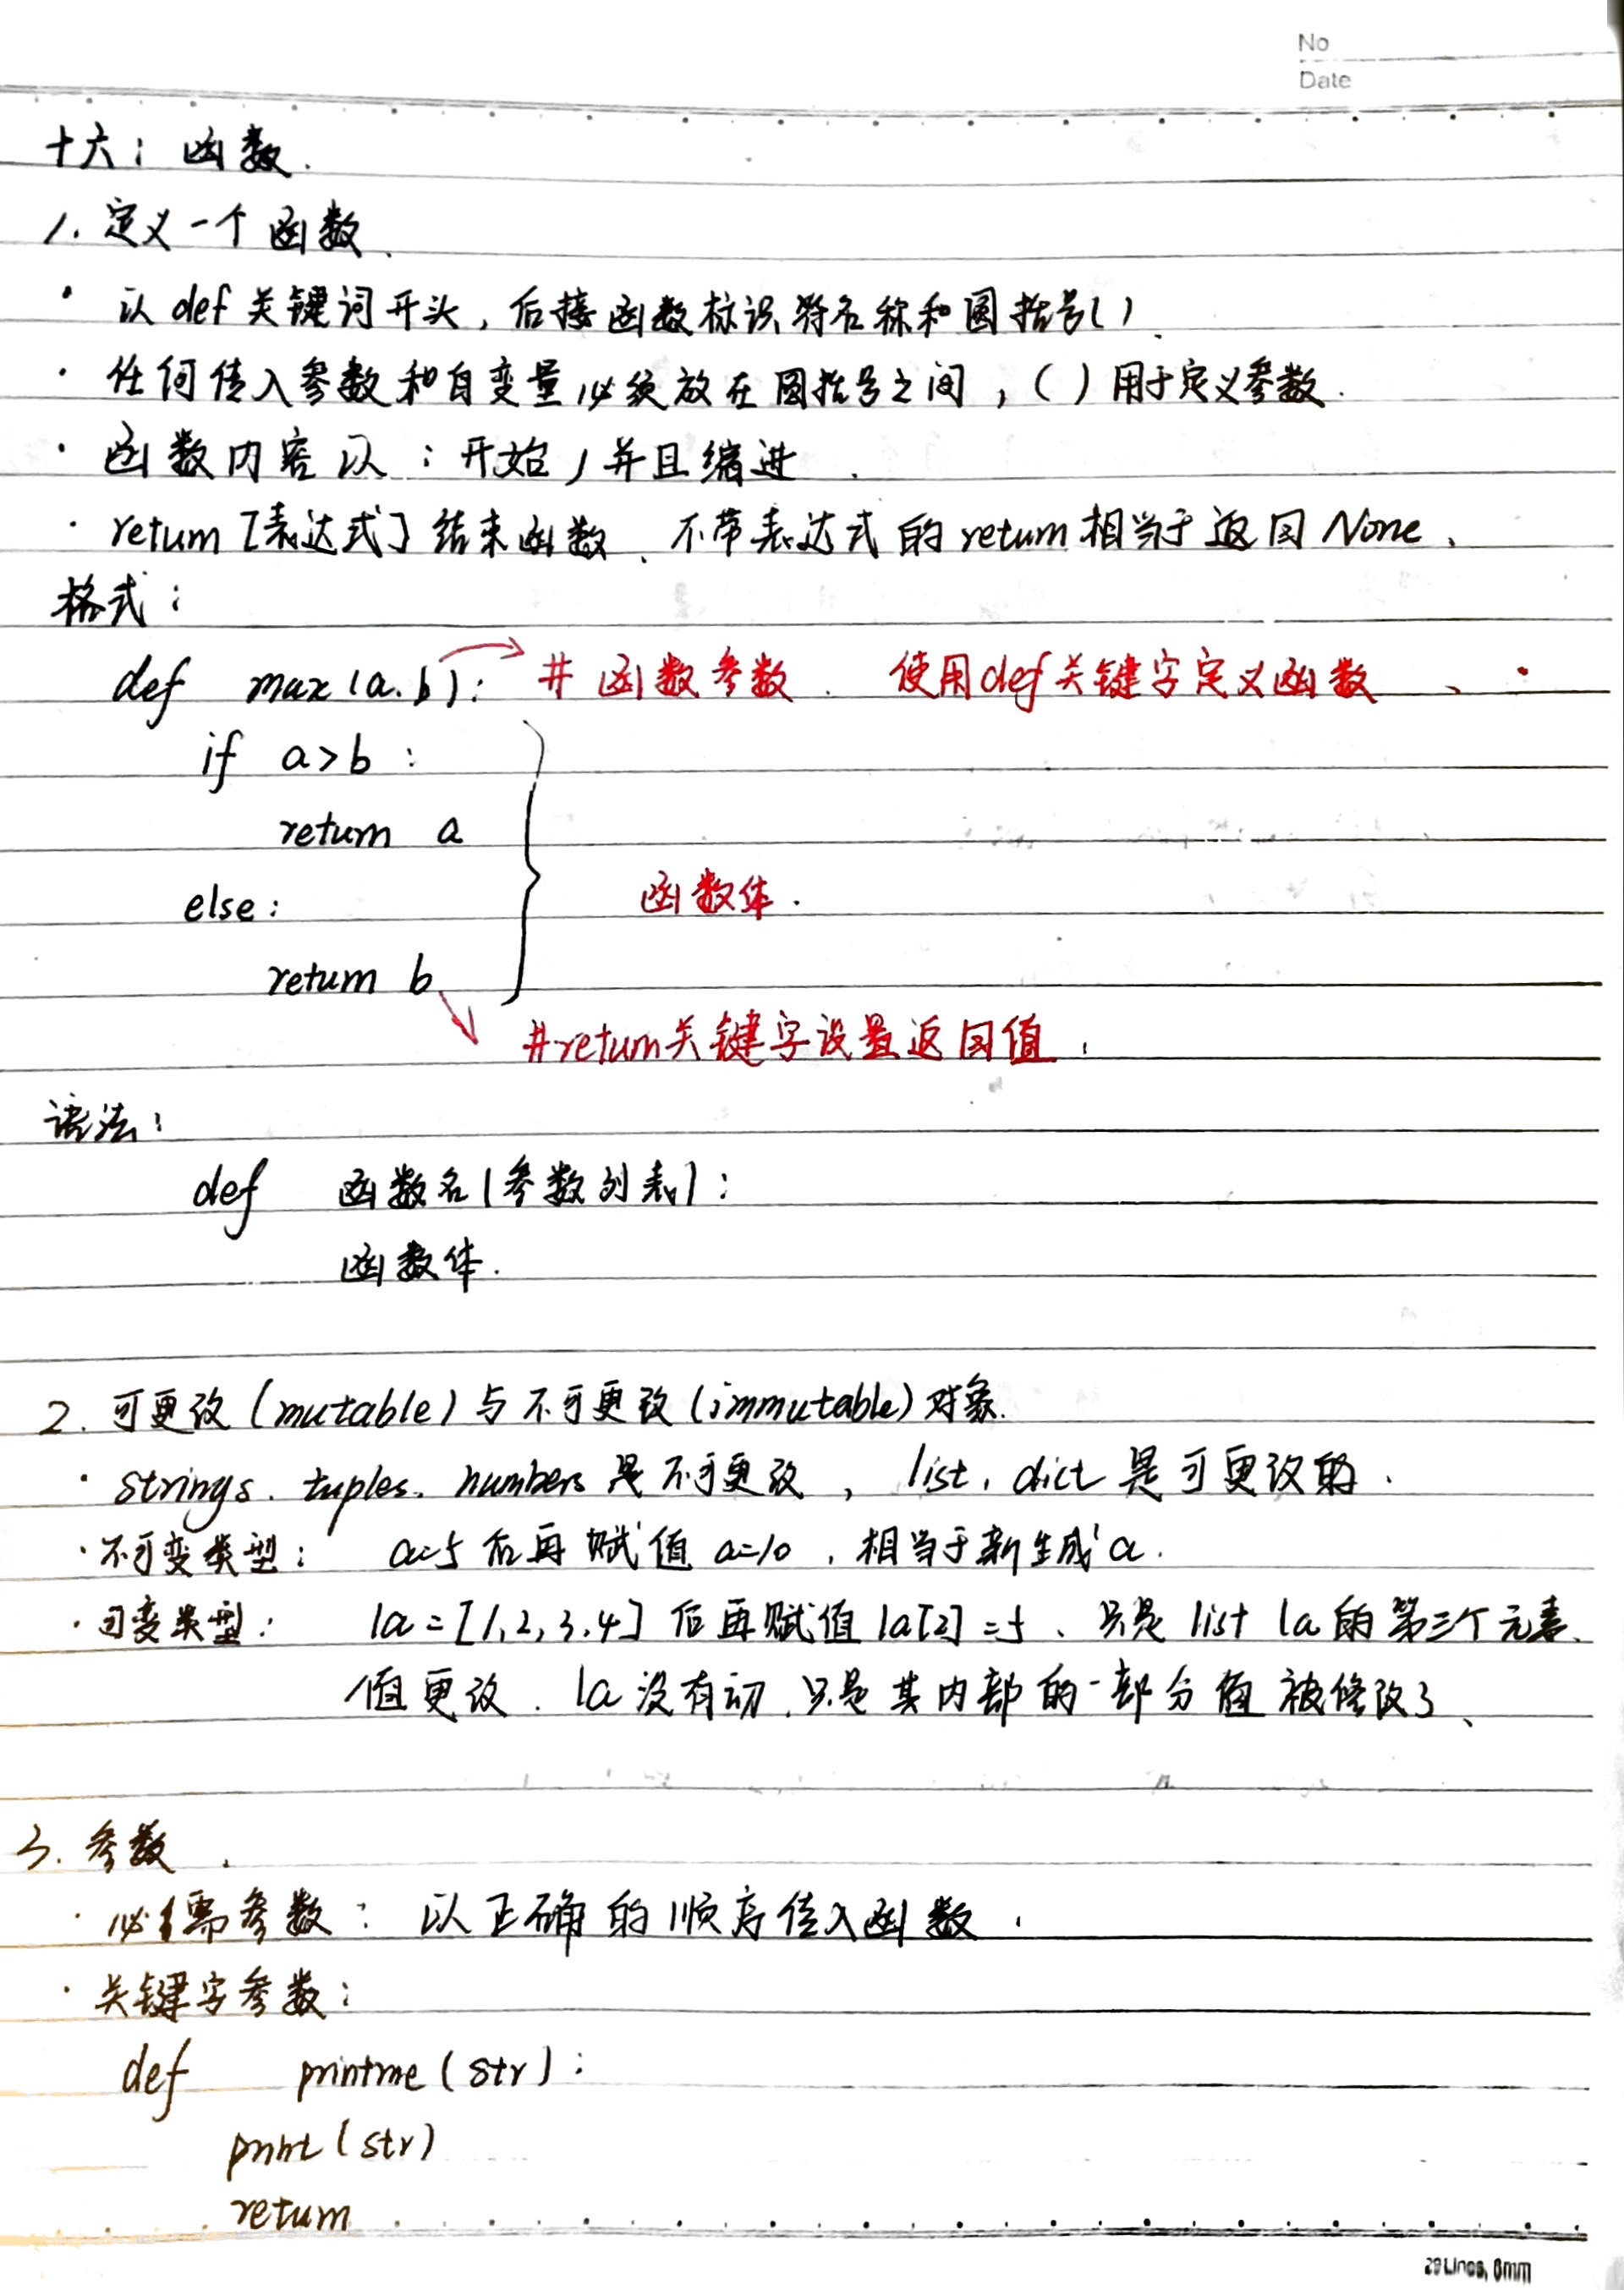 No
Date
十六：函数.
1. 定义一个函数.
· 以def关键词开头，后接函数标识符名称和圆括号().
· 任何传入参数和自变量必须放在圆括号之间，( )用于定义参数.
· 函数内容以：开始，并且缩进.
· return [表达式] 结束函数. 不带表达式的return相当于返回None.
格式：
def max(a.b): # 函数参数. 使用def关键字定义函数、
if a>b:
return a
else: 函数体.
return b
#return关键字设置返回值.
语法：
def 函数名(参数列表):
函数体.
2. 可更改(mutable)与不可更改(immutable)对象.
· strings. tuples. numbers 是不可更改, list, dict 是可更改的.
· 不可变类型: a=5后再赋值a=10, 相当于新生成a.
· 可变类型: la=[1,2,3,4]后再赋值la[2]=5、只是list la的第三个元素
值更改. la没有动.只是其内部的一部分值被修改了、
3. 参数.
· 必需参数: 以正确的顺序传入函数.
· 关键字参数:
def printme(str):
print(str)
return
29 Lines, 8mm